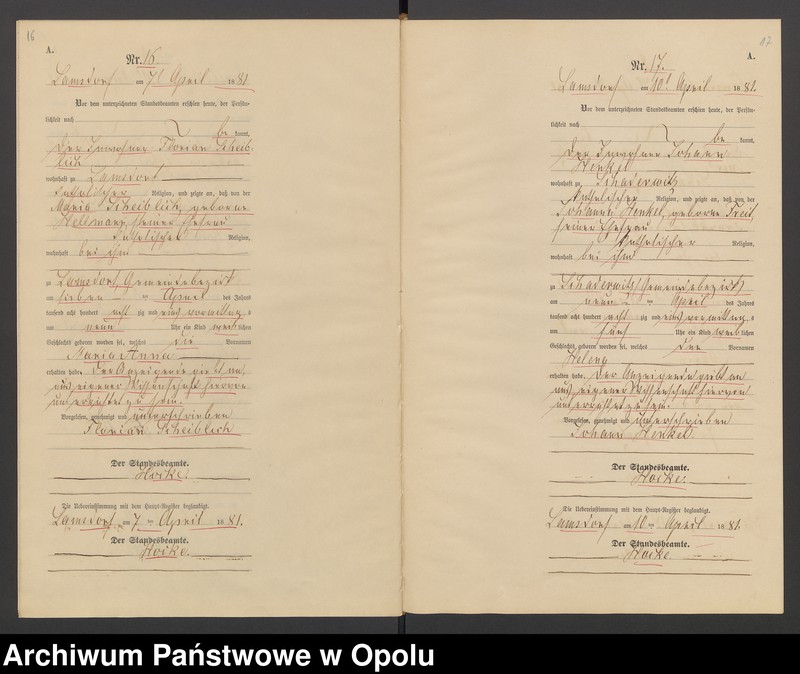 16
A.
Nr. 16.
Lamsdorf am 7t April 1881
Vor dem unterzeichneten Standesbeamten erschien heute, der Persön-
lichkeit nach
be kannt,
der Inwohner Florian Scheib-
lich
wohnhaft zu Lamsdorf
katholischer Religion, und zeigte an, daß von der
Maria Scheiblich, geborene
Hellmann, seiner Ehefrau
katholischer Religion,
wohnhaft bei ihm
zu Lamsdorf, Gemeindebezirk
am sieben ten April des Jahres
tausend acht hundert acht zig und eins vormittag s
um neun Uhr ein Kind weib lichen
Geschlechts geboren worden sei, welches die Vornamen
Maria Anna
erhalten habe. Der Anzeigende giebt an,
aus eigener Wissenschaft hiervon
unterrichtet zu sein.
Vorgelesen, genehmigt und unterschrieben
Florian Scheiblich
Der Standesbeamte.
Hocke.
Die Uebereinstimmung mit dem Haupt-Register beglaubigt.
Lamsdorf am 7 ten April 1881.
Der Standesbeamte.
Hocke.
17
A.
Nr. 17.
Lamsdorf am 10t April 1881.
Vor dem unterzeichneten Standesbeamten erschien heute, der Persön-
lichkeit nach
be kannt,
der Inwohner Johann
Henkel
wohnhaft zu Schaderwitz
katholischer Religion, und zeigte an, daß von der
Johanna Henkel, geborene Freit,
seiner Ehefrau
katholischer Religion,
wohnhaft bei ihm
zu Schaderwitz Gemeindebezirk
am neun ten April des Jahres
tausend acht hundert acht zig und eins vormittag s
um fünf Uhr ein Kind weib lichen
Geschlechts geboren worden sei, welches den Vornamen
Helena
erhalten habe. Der Anzeigende giebt an
aus eigener Wissenschaft hiervon
unterrichtet zu sein.
Vorgelesen, genehmigt und unterschrieben
Johann Henkel.
Der Standesbeamte.
Hocke.
Die Uebereinstimmung mit dem Haupt-Register beglaubigt.
Lamsdorf am 10 ten April 1881.
Der Standesbeamte.
Hocke
Archiwum Państwowe w Opolu